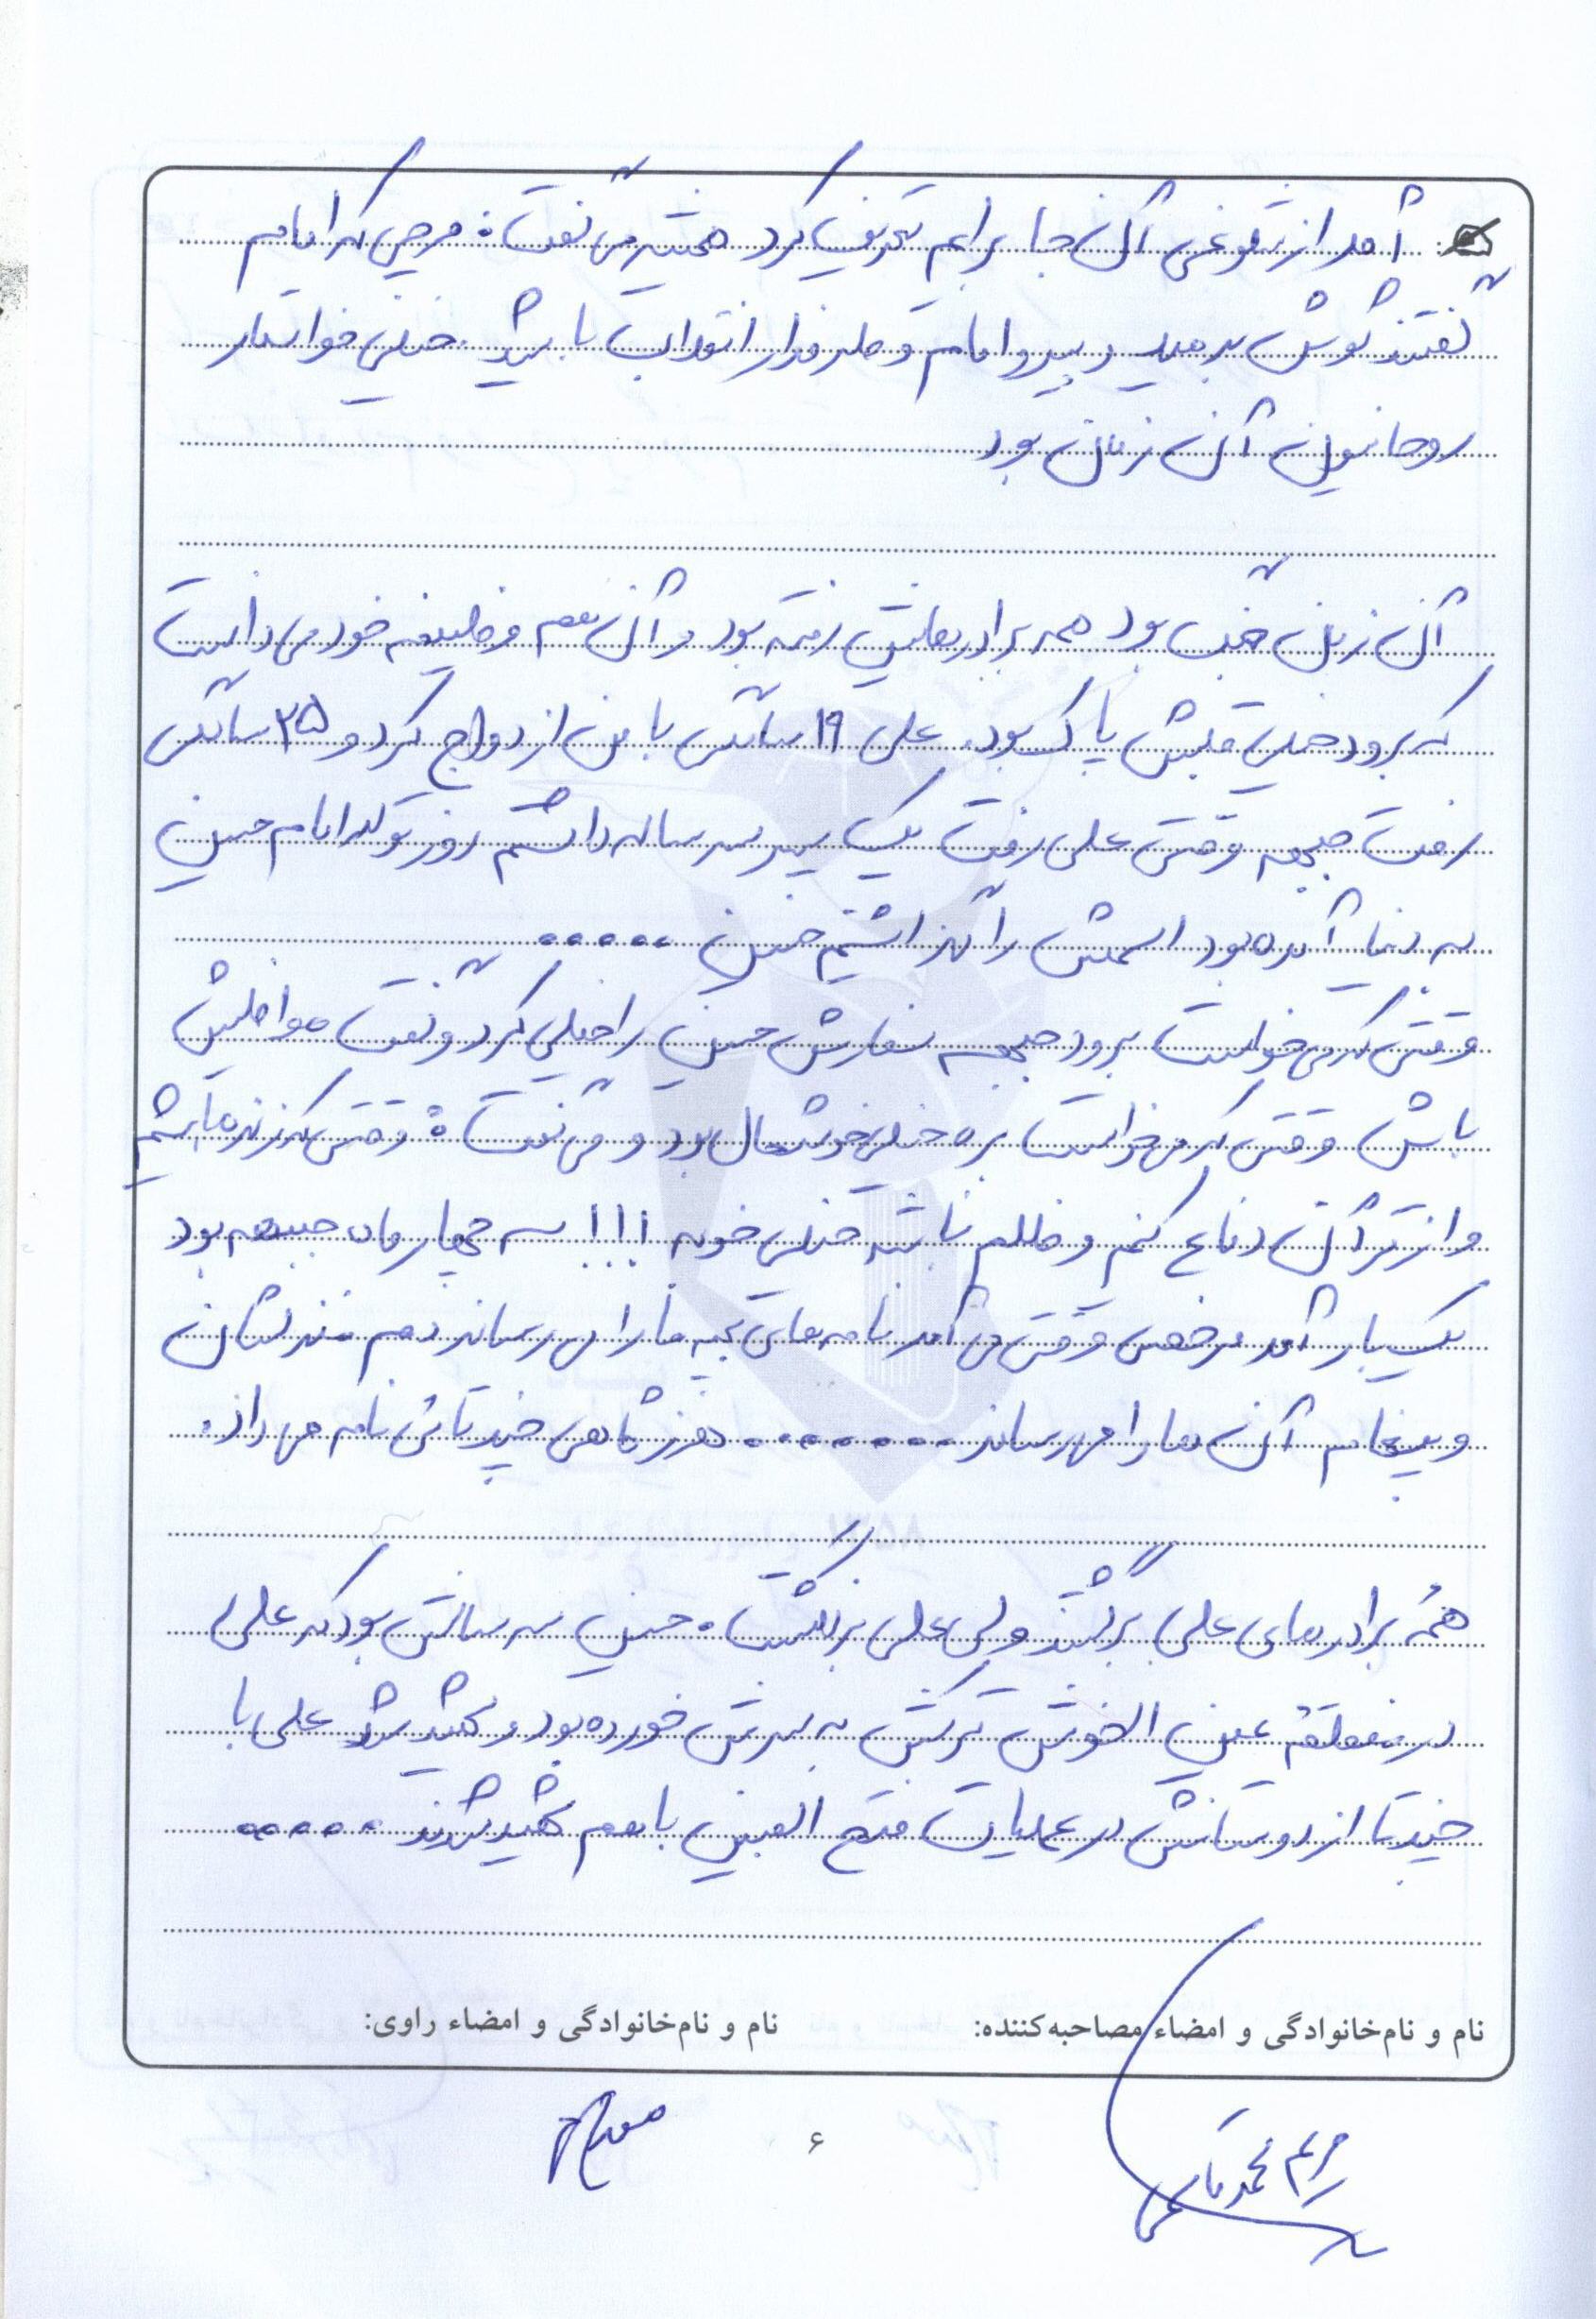 آمد از شلوغی آن جا برایم تعریف کرد همیشه می گفت: هرچی که امام
گفتند گوش بدهید و پیرو امام و طرفدار انقلاب باشید. خیلی خواستار
روحانیون آن زمان بود
آن زمان جنگ بود همه برادرهایش رفته بود و آن هم وظیفه خود می دانست
که برود خیلی قلبش پاک بود. علی ۱۹ سالگی با من ازدواج کرد و ۲۵ سالگی
رفت جبهه وقتی علی رفت یک پسر سه ساله داشتم روز تولد امام حسین
به دنیا آمده بود اسمش را گذاشتیم حسین .....
وقتی که می خواست برود جبهه سفارش حسین را خیلی کرد و گفت مواظبش
باش وقتی که می خواست بره خیلی خوشحال بود و می گفت: وقتی که زنده باشم
و از قرآن دفاع کنم و ظلم نباشه خیلی خوبه !!! سه چهار ماه جبهه بود
یک بار آمد مرخصی وقتی می آمد نامه های بقیه را می رساند دم منزلشان
و پیغام آن ها را می رساند ........ هرزگاهی چندتائی نامه می داد.
همهٔ برادرهای علی برگشتند ولی علی برنگشت. حسین سه سالش بود که علی
در منطقه عین الخوش ترکش به سرش خورده بود و شهید شد علی با
چندتا از دوستانش در عملیات فتح المبین باهم شهید شدند .....
نام و نام‌خانوادگی و امضاء مصاحبه‌کننده:
نام و نام‌خانوادگی و امضاء راوی:
مریم محمدقاسمی
۶